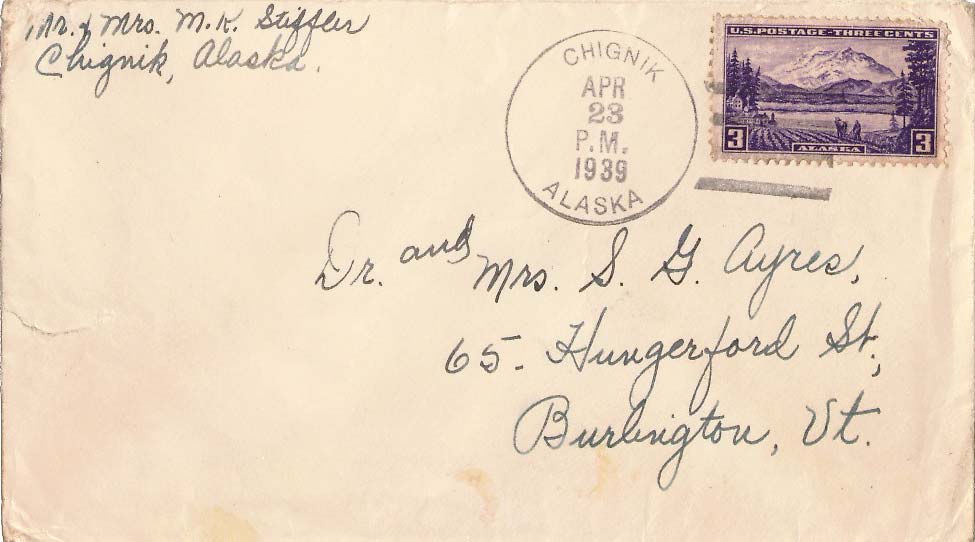 Mr. & Mrs. M. K. Stiffler
Chignik, Alaska.
CHIGNIK
APR
23
P.M.
1939
ALASKA
U.S. POSTAGE - THREE CENTS
3 ALASKA 3
Dr. and Mrs. S. G. Ayres,
65 - Hungerford St.,
Burlington, Vt.